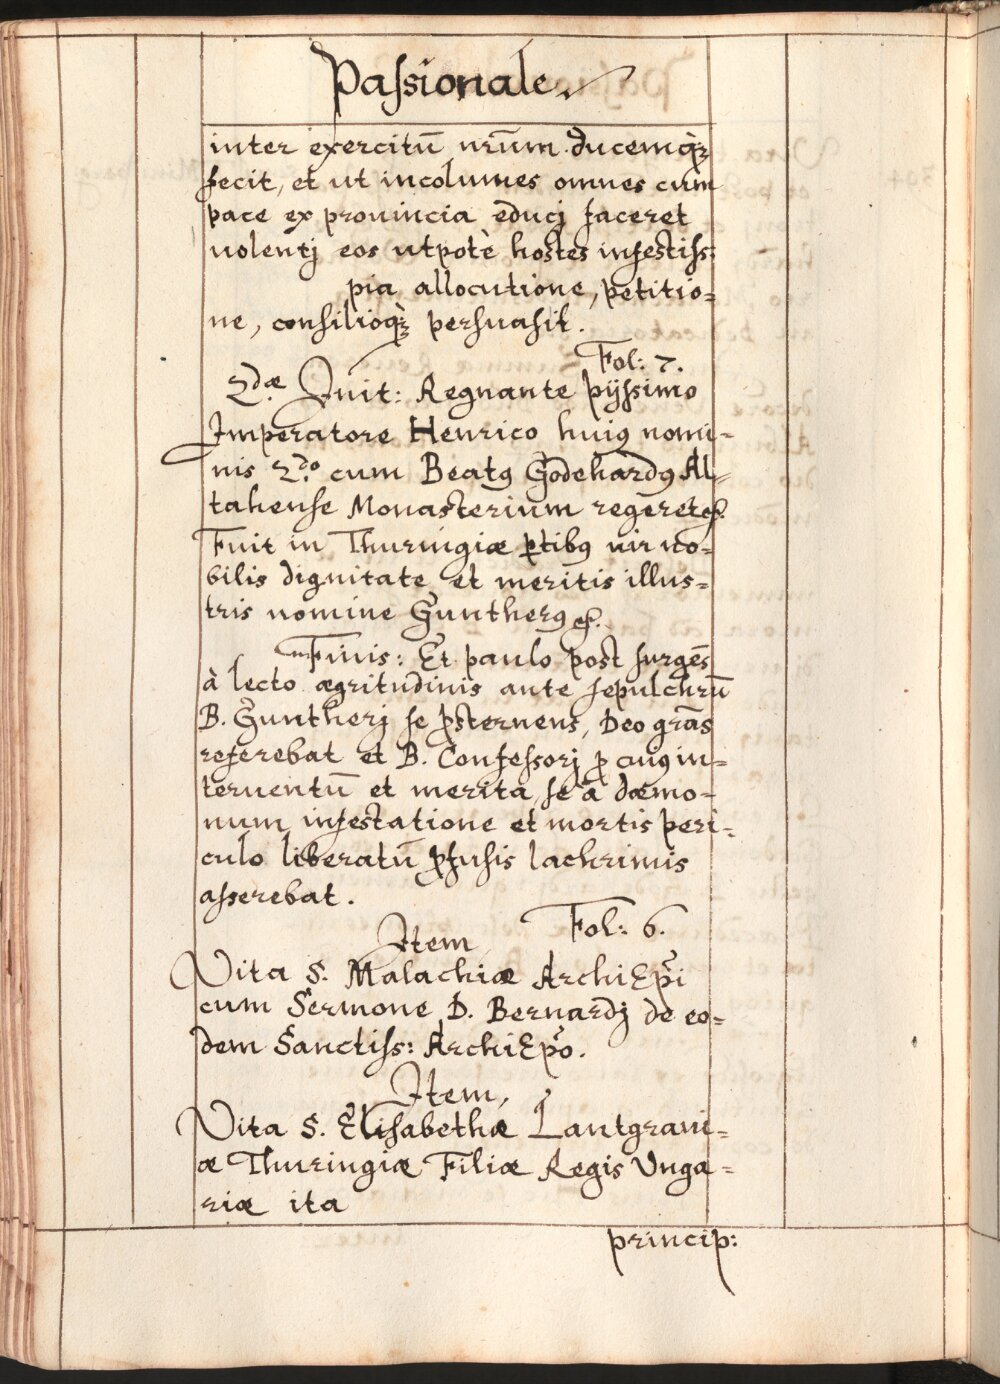 Passionale.
inter exercitū nr̄um ducemq̀ꝫ
fecit, et ut incolumes omnes cum
pace ex prouincia educj faceret
uolentj eos utpotè hostes infestiss:
pia allocutione, petitio=
ne, consilioq̀ꝫ persuasit.
Fol: 7.
2.dæ Init: Regnante pijssimo
Imperatore Henrico huiꝰ nomi=
nis 2.do cum Beatꝰ Godehardꝰ Al=
tahense Monasterium regeret ꝛc.
Fuit in Thuringiæ ꝑtibꝰ uir no=
bilis dignitate et meritis illus=
tris nomine Guntherꝰ ꝛc.
Finis: Et paulo post surgēs
à lecto ægritudinis ante sepulchrū
B. Guntherj se ꝓsternens, Deo grās
referebat et B. Confessorj ꝑ cuiꝰ in=
teruentū et merita se à dæmo=
num infestatione et mortis peri=
culo liberatū ꝓfusis lachrimis
asserebat.
Item Fol: 6.
Vita S. Malachiæ ArchiEp̄i
cum Sermone D. Bernardj de eo=
dem Sanctiss: ArchiEp̄o.
Item,
Vita S. Elisabethæ Lantgraui=
æ Thuringiæ Filiæ Regis Unga=
riæ ita
princip: